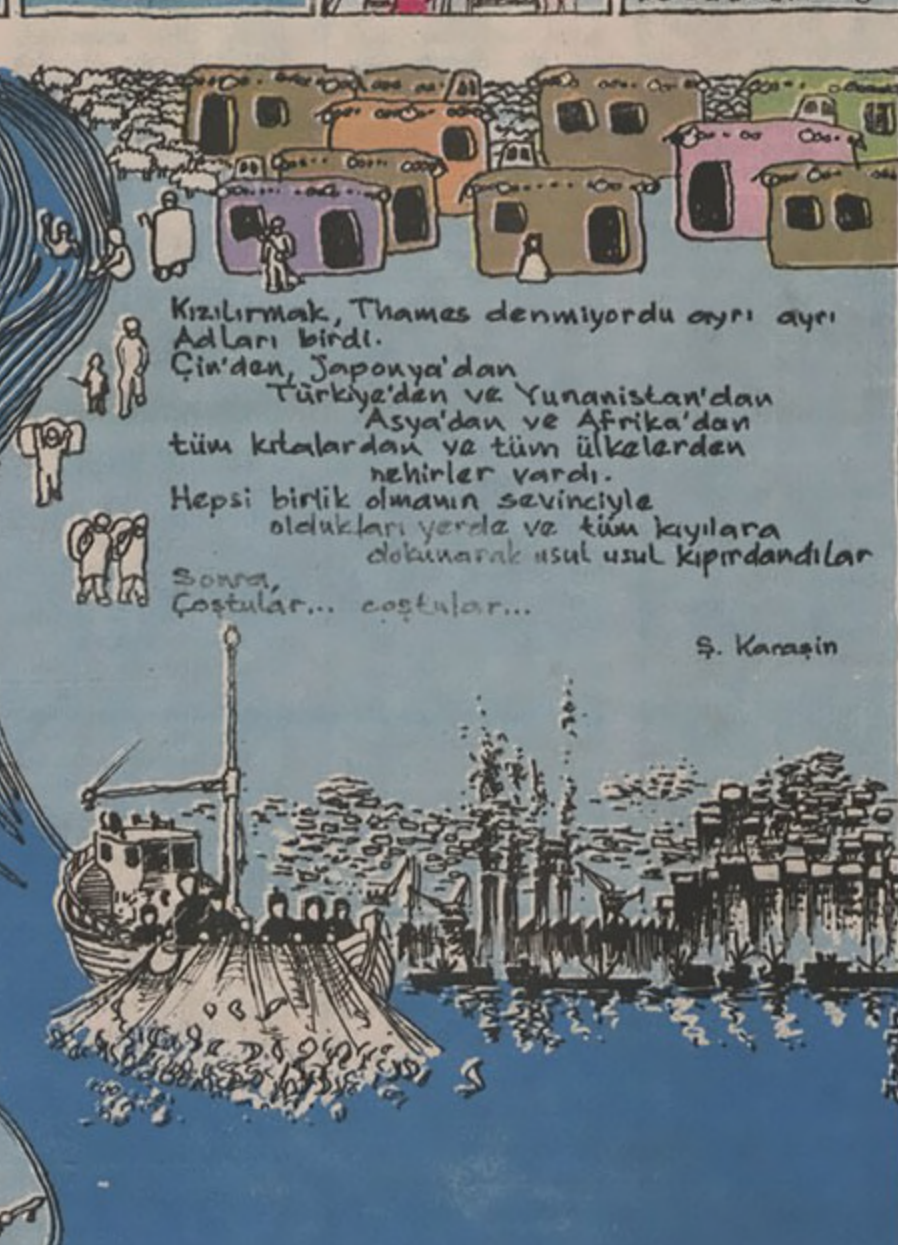 Kızılırmak, Thames denmiyordu ayrı ayrı
Adları birdi.
Çin'den, Japonya'dan
Türkiye'den ve Yunanistan'dan
Asya'dan ve Afrika'dan
tüm kıtalardan ve tüm ülkelerden
nehirler vardı.
Hepsi birlik olmanın sevinciyle
oldukları yerde ve tüm kıyılara
dokunarak usul usul kıpırdandılar
Sonra,
Çoştular... coştular...
Ş. Karaşin